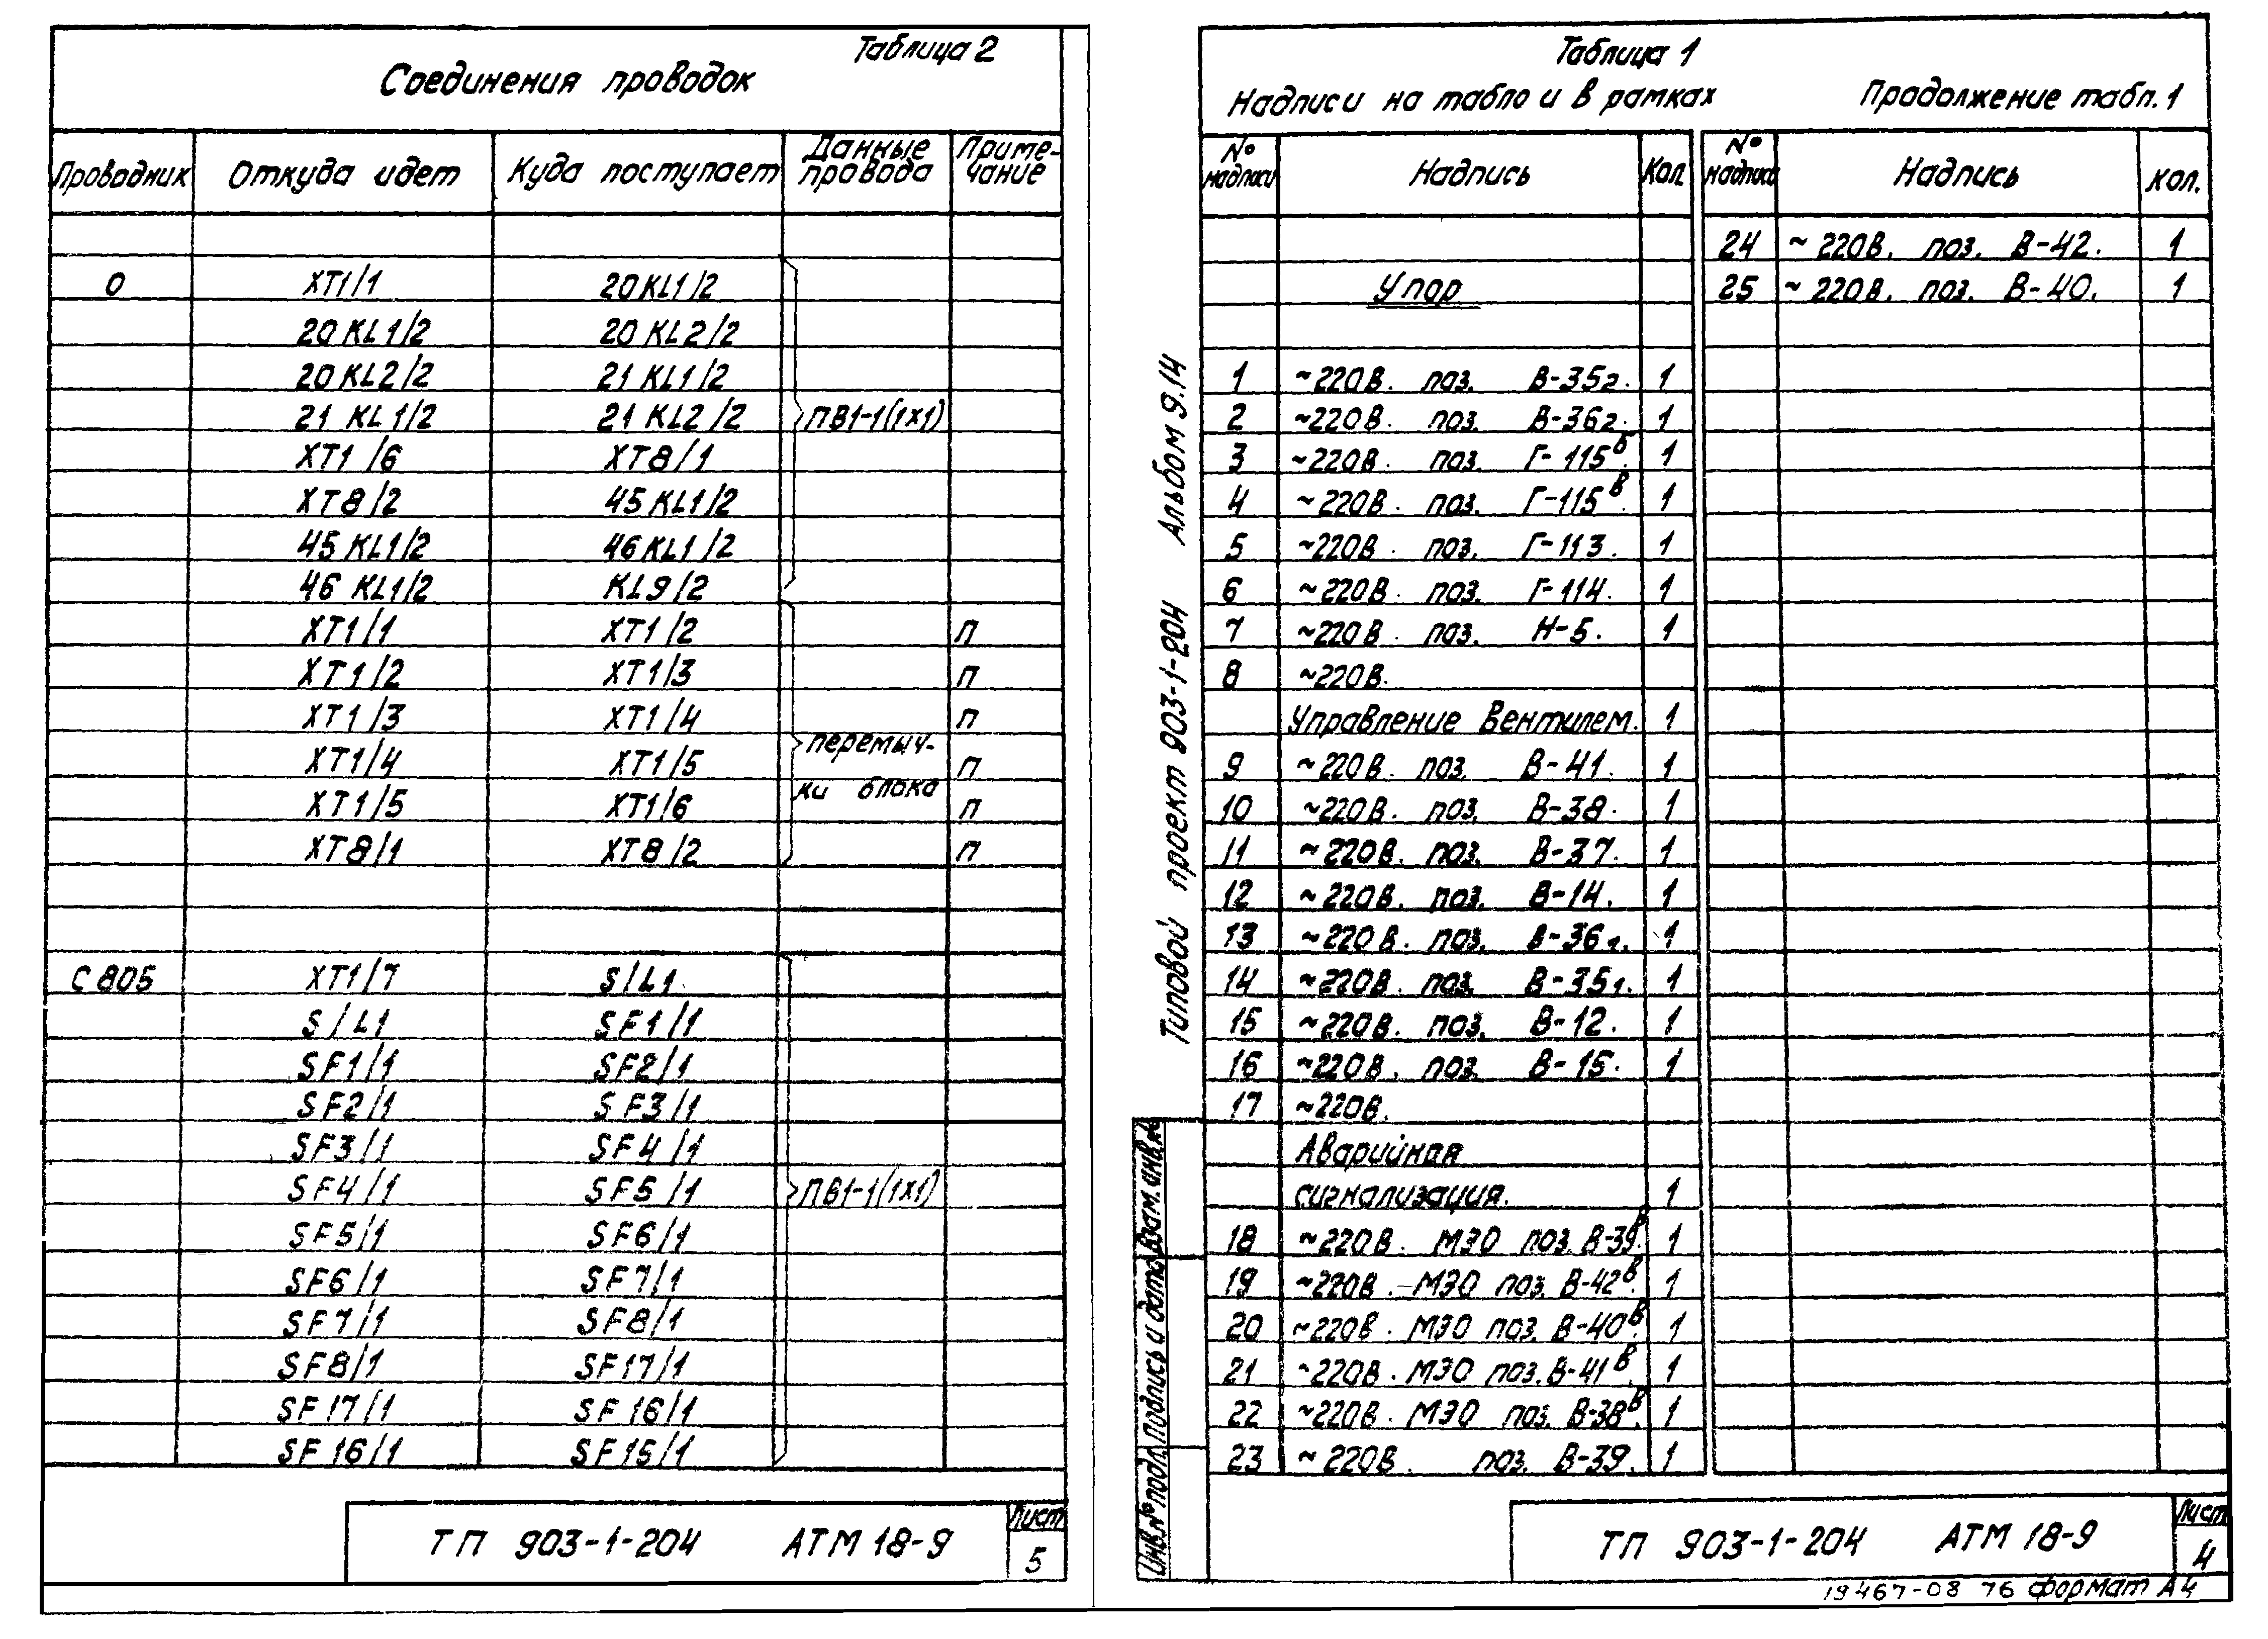 Таблица 2
Соединения проводок
Проводник Откуда идет Куда поступает Данные провода Примечание
0 XT1/1 20KL1/2
20KL1/2 20KL2/2
20KL2/2 21KL1/2
21KL1/2 21KL2/2 ПВ1-1(1x1)
XT1/6 XT8/1
XT8/2 45KL1/2
45KL1/2 46KL1/2
46KL1/2 KL9/2
XT1/1 XT1/2 п
XT1/2 XT1/3 п
XT1/3 XT1/4 п
XT1/4 XT1/5 перемыч- п
XT1/5 XT1/6 ки блока п
XT8/1 XT8/2 п
С805 XT1/7 S/L1
S/L1 SF1/1
SF1/1 SF2/1
SF2/1 SF3/1
SF3/1 SF4/1
SF4/1 SF5/1 ПВ1-1(1x1)
SF5/1 SF6/1
SF6/1 SF7/1
SF7/1 SF8/1
SF8/1 SF17/1
SF17/1 SF16/1
SF16/1 SF15/1
ТП 903-1-204 АТМ 18-9
Лист
5
Таблица 1
Надписи на табло и в рамках Продолжение табл. 1
№ надписи Надпись Кол. № надписи Надпись Кол.
Упор
1 ~220В. поз. В-35г. 1
2 ~220В. поз. В-36г. 1
3 ~220В. поз. Г-115б. 1
4 ~220В. поз. Г-115в. 1
5 ~220В. поз. Г-113. 1
6 ~220В. поз. Г-114. 1
7 ~220В. поз. Н-5. 1
8 ~220В.
Управление вентилем. 1
9 ~220В. поз. В-41. 1
10 ~220В. поз. В-38. 1
11 ~220В. поз. В-37. 1
12 ~220В. поз. В-14. 1
13 ~220В. поз. В-36г. 1
14 ~220В. поз. В-35г. 1
15 ~220В. поз. В-12. 1
16 ~220В. поз. В-15. 1
17 ~220В.
Аварийная
сигнализация. 1
18 ~220В. МЭО поз. В-39в. 1
19 ~220В. МЭО поз. В-42в. 1
20 ~220В. МЭО поз. В-40в. 1
21 ~220В. МЭО поз. В-41в. 1
22 ~220В. МЭО поз. В-38в. 1
23 ~220В. поз. В-39. 1
24 ~220В. поз. В-42. 1
25 ~220В. поз. В-40. 1
Типовой проект 903-1-204 Альбом 9.14
Инв.№ подл. Подпись и дата Взам. инв.№
ТП 903-1-204 АТМ 18-9
Лист
4
19467-08 76 формат А4